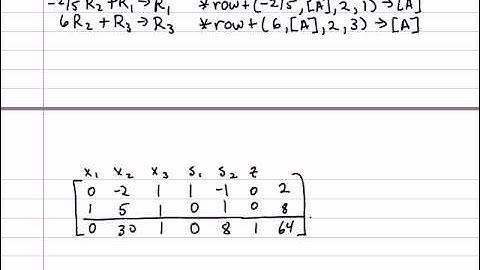 -2/5 R₂ + R₁ → R₁ *row+(-2/5, [A], 2, 1) → [A]
6R₂ + R₃ → R₃ *row+(6, [A], 2, 3) → [A]
x₁ x₂ x₃ s₁ s₂ z
0 -2 1 1 -1 0 2
1 5 1 0 1 0 8
0 30 1 0 8 1 64